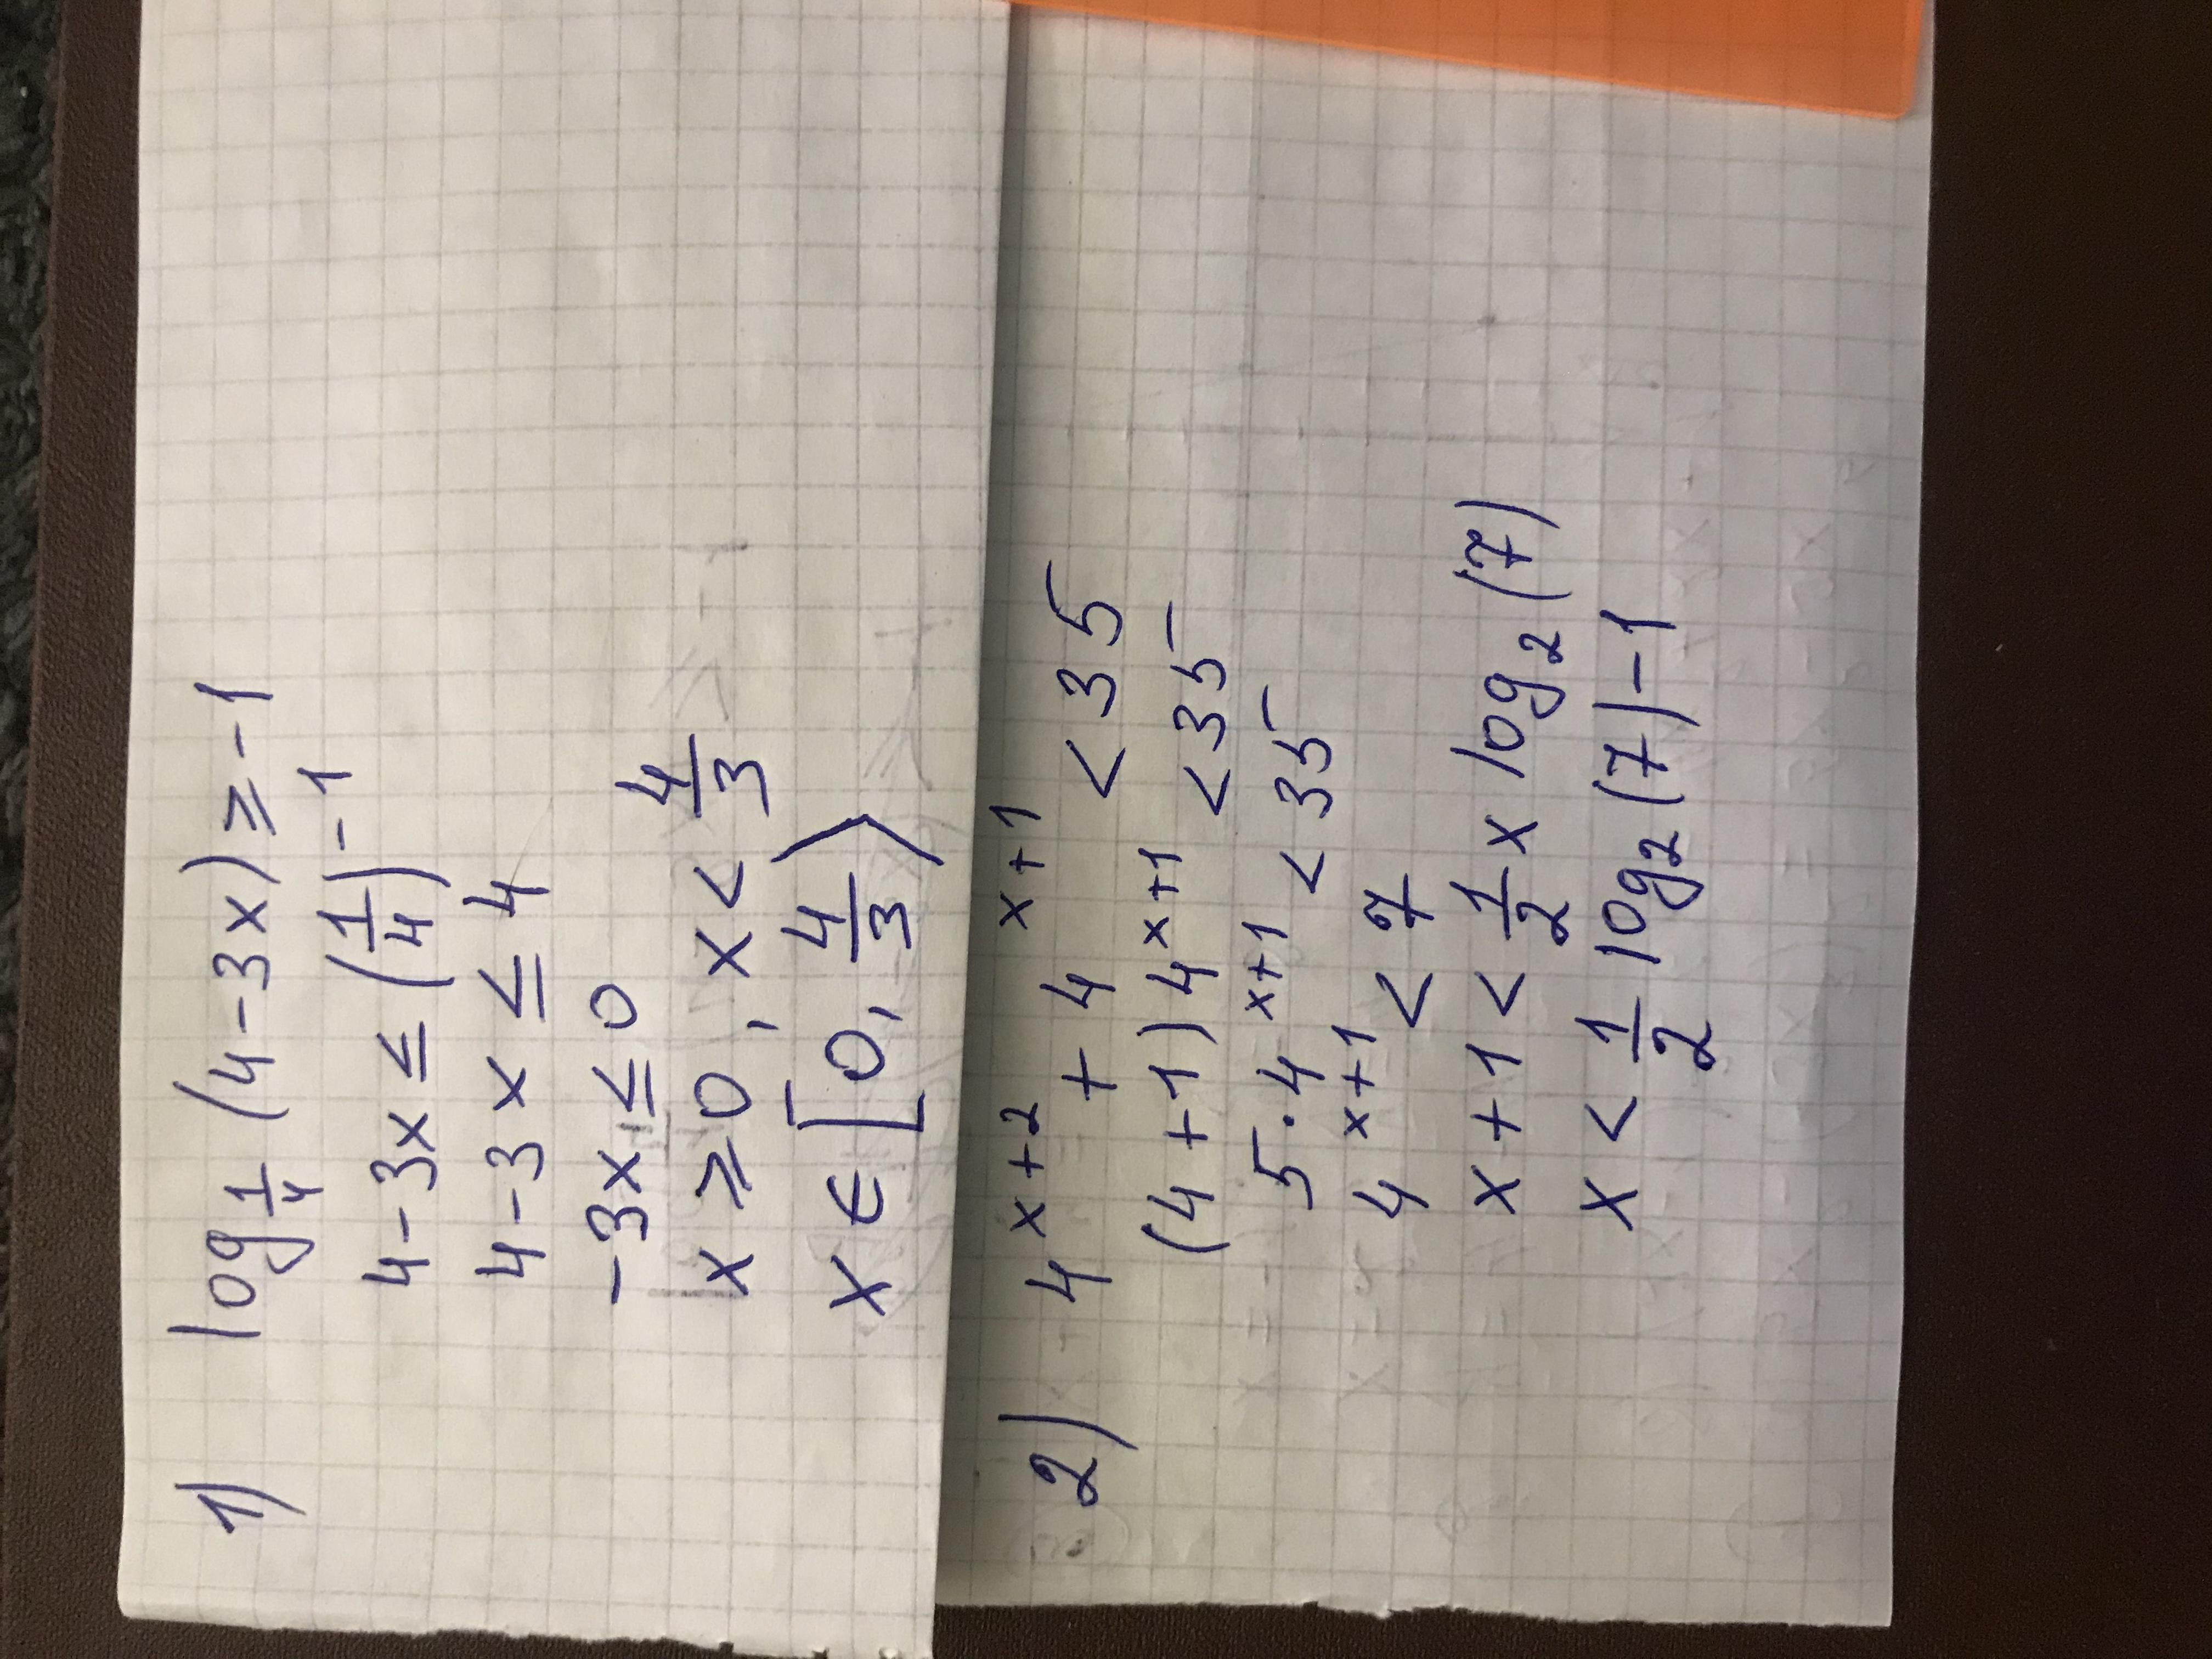 1) log 1/4 (4-3x) ≥ -1
4-3x ≤ (1/4)^-1
4-3x ≤ 4
-3x ≤ 0
x ≥ 0, x < 4/3
x ∈ [0, 4/3⟩
2) 4^x+2 + 4^x+1 < 35
(4+1)4^x+1 < 35
5·4^x+1 < 35
4^x+1 < 7
x+1 < 1/2 x log2(7)
x < 1/2 log2(7)-1